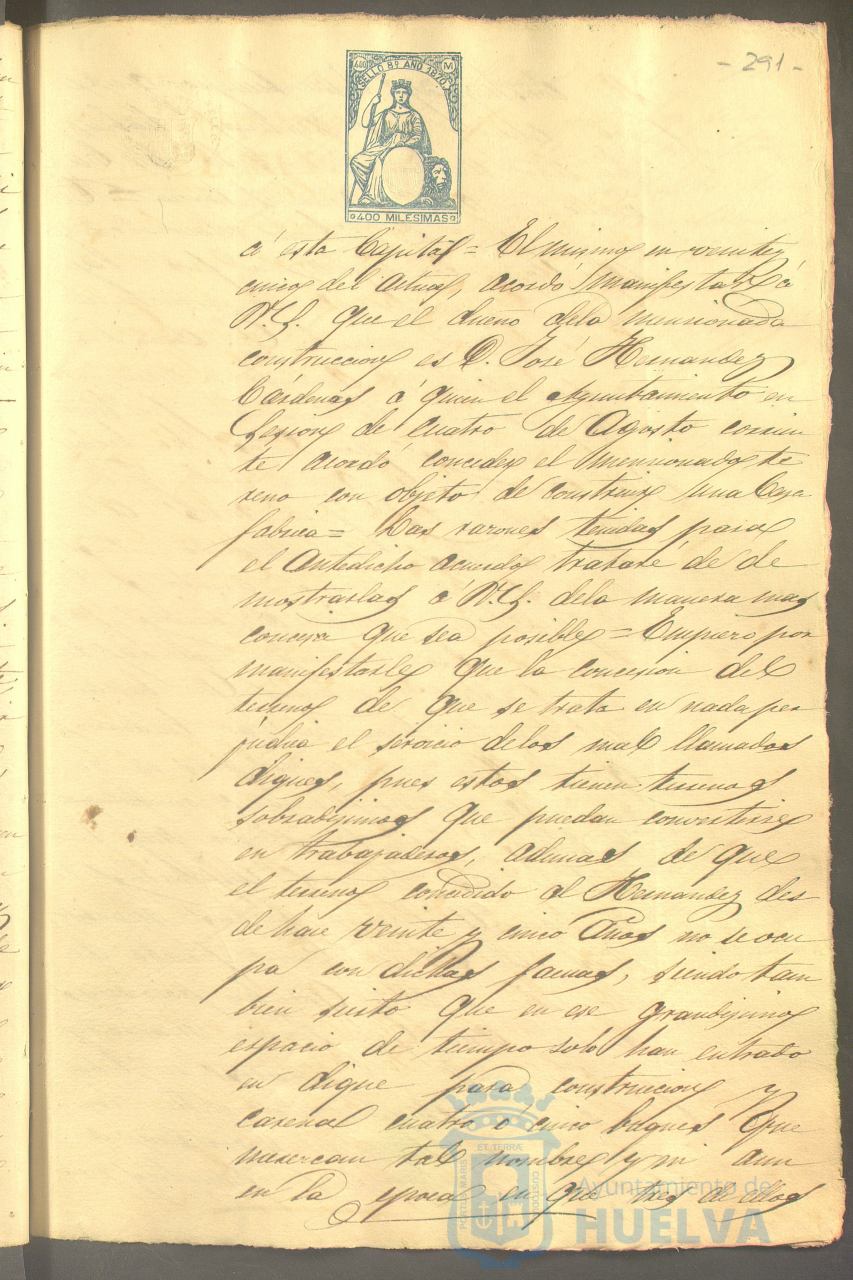 - 291 -
400 SELLO 8º AÑO 1870. M
400 MILESIMAS
á esta Capital = El mismo en veinte y
cinco del actual, acordó manifestar á
V.S. que el dueño dela mencionada
construccion es D. José Hernandez
Cárdenas á quien el Ayuntamiento en
Sesion de cuatro de Agosto corrien
te acordó conceder el mencionado te
reno con objeto de construir una Casa
fabrica = Las razones tenidas para
el antedicho acuerdo trataré de de
mostrarlas á V.S. dela manera mas
concisa que sea posible = Empiezo por
manifestarle que la concesion del
terreno de que se trata en nada per
judica el servicio delos mal llamados
diques, pues estos tienen terrenos
sobradisimos que puedan convertirse
en trabajaderos, ademas de que
el terreno concedido al Hernandez des
de hace veinte y cinco años no se ocu
pa con dichas faenas, siendo tam
bien cierto que en ese grandisimo
espacio de tiempo solo han entrado
en dique para construccion y
carenal cuatro ó cinco buques que
merezcan tal nombre y ni aun
en la epoca en que tres de ellos
Ayuntamiento de
HUELVA